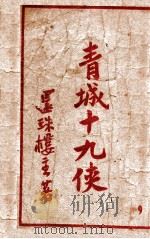 青城十九俠
還珠樓主著
9